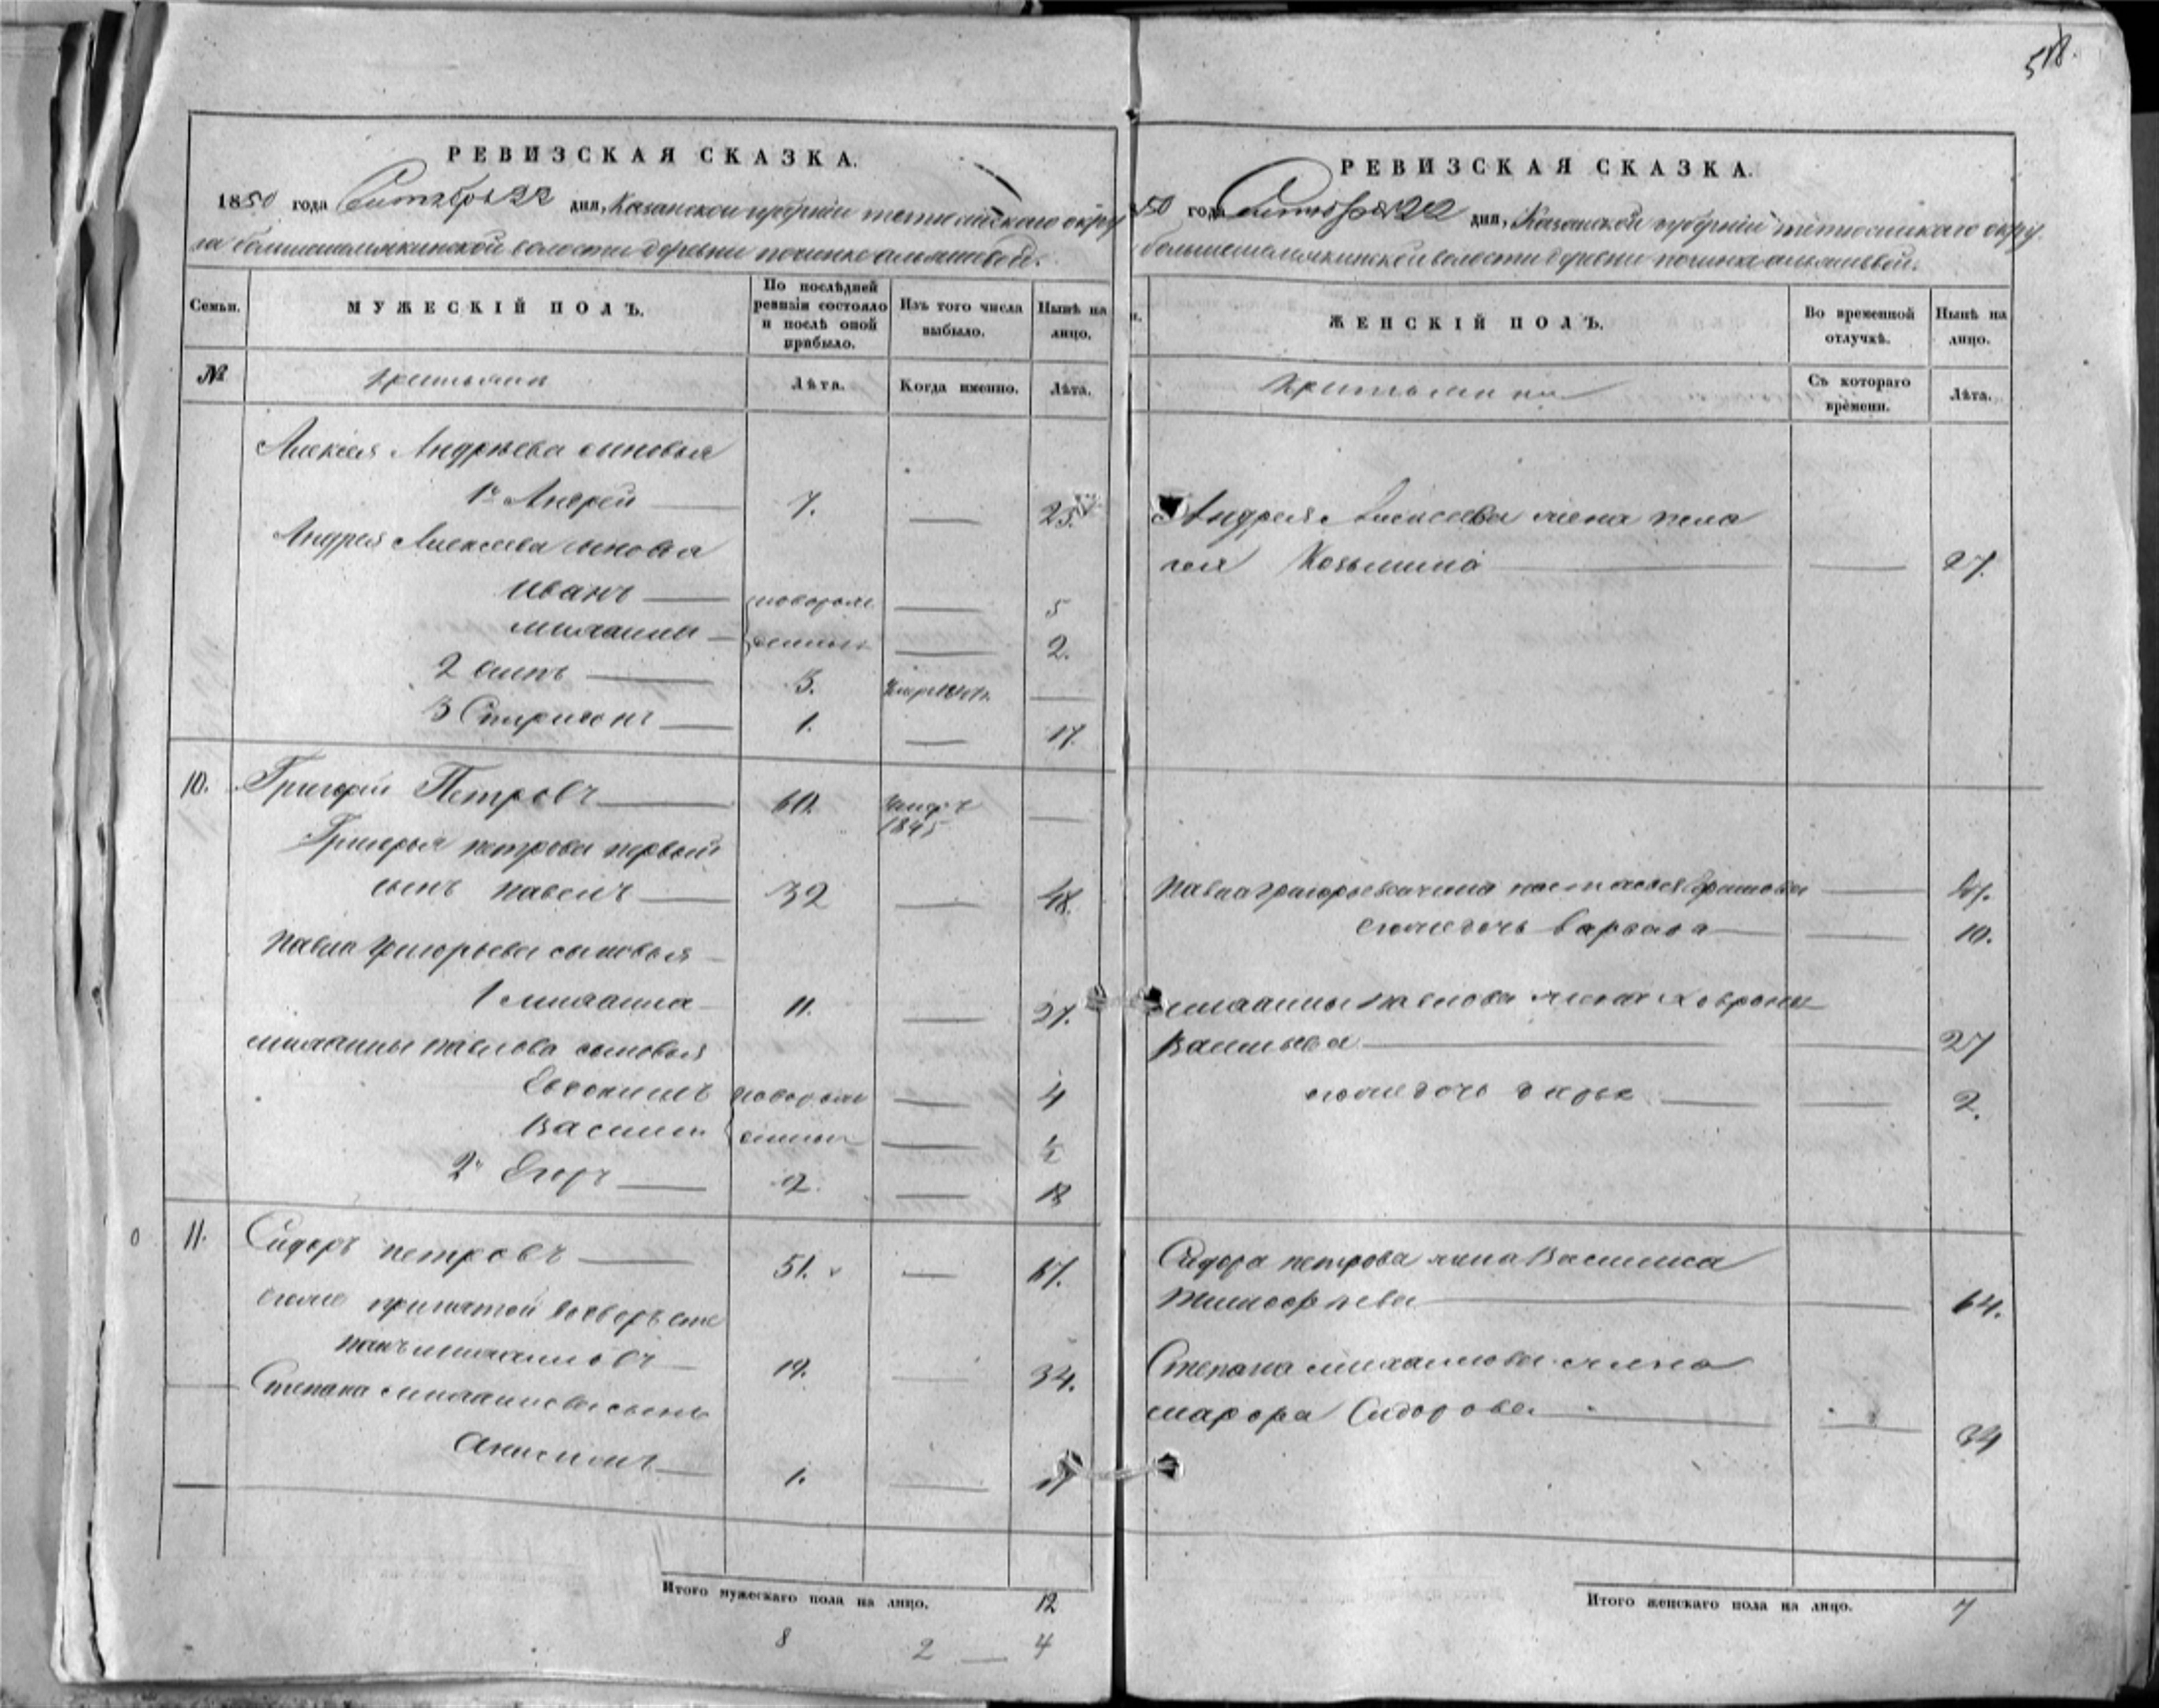 518.
РЕВИЗСКАЯ СКАЗКА.
1850 года Октября 22 дня, Казанской губернии тетюшскаго окру
га большешемякинской волости деревни починке альшиевой.
Семьи. МУЖЕСКІЙ ПОЛЪ. По послѣдней ревизіи состояло и послѣ оной прибыло. Изъ того числа выбыло. Нынѣ на лицо.
№ крестьяня Лѣта. Когда именно. Лѣта.
Алексея Андреева сыновья
1й Андрей 7. — 25.
Андрея Алексеева сыновья
Иванъ новорож — 5
михаила денные — 2.
2 3. —
3 1. — 17.
10. Григорій Петровъ 60. 1845 —
Григорья петрова первый
сынъ павелъ 32 — 48.
павла григорьева сыновья
1 михаила 11. — 27.
михаилы павлова сыновья
Евдокимъ новорож — 4
Василии денные — ½
2й Егоръ 2. — 18
11. Сидоръ петровъ 51. — 67.
еголиε принятой вдворъ сте
панъ михаиловъ 19. — 34.
Степана михаилова сынъ
Анисимъ 1. — 17
Итого мужескаго пола на лицо. 12
8 2 — 4
РЕВИЗСКАЯ СКАЗКА.
50 года Октября 22 дня, Казанской губерніи тетюшскаго окру.
большешемякинской волости деревни починка альшиевой.
ЖЕНСКІЙ ПОЛЪ. Во временной отлучкѣ. Нынѣ на лицо.
Съ котораго времени. Лѣта.
Андрея Алексеева жена пела
гея Козьмина — 27.
Павла григорьева жена настасья — 47.
егоже дочь варвара — 10.
михаилы павлова жена ховронья
Васильева 27
егоже дочь дарья — 2.
Сидора петрова жена Василиса
Тимофеева 64.
Степана михаилова жена
марфа Сидорова — 34
Итого женскаго пола на лицо. 7